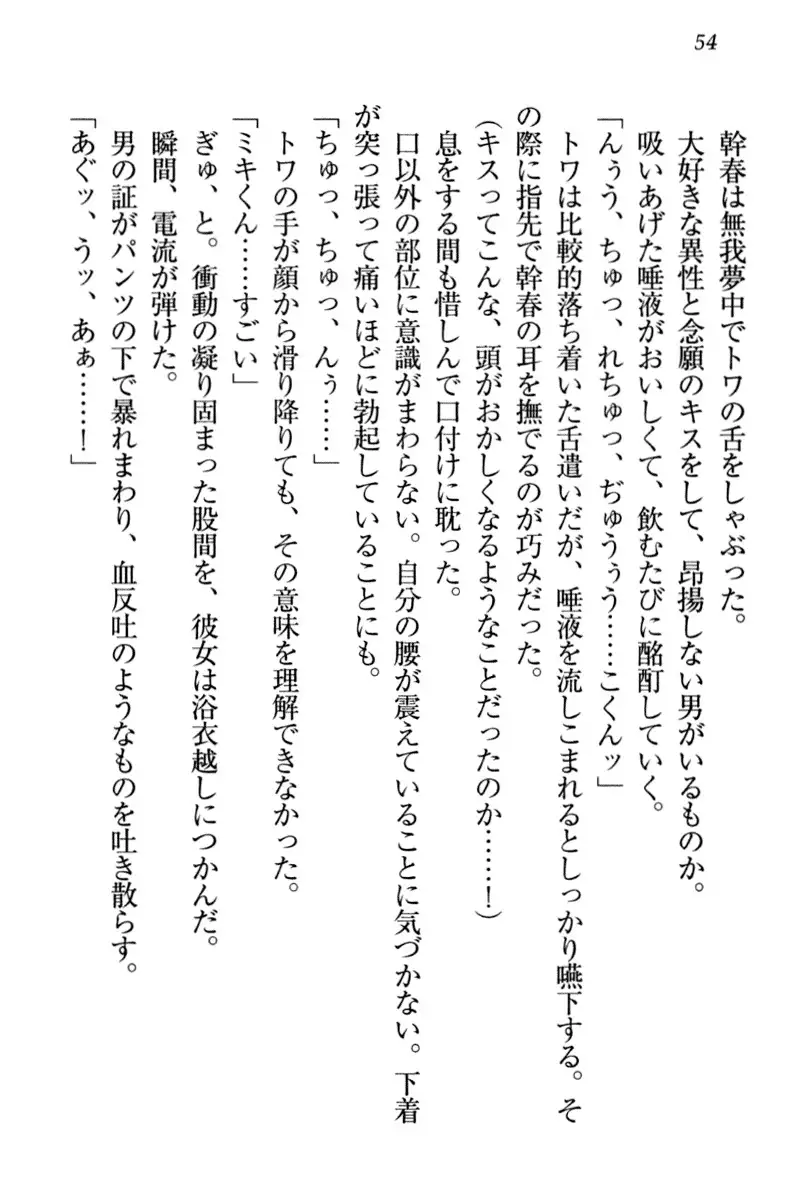 54
幹春は無我夢中でトワの舌をしゃぶった。
大好きな異性と念願のキスをして、昂揚しない男がいるものか。
吸いあげた唾液がおいしくて、飲むたびに酩酊していく。
「んぅう、ちゅっ、れちゅっ、ぢゅうぅう……こくんッ」
トワは比較的落ち着いた舌遣いだが、唾液を流しこまれるとしっかり嚥下する。そ
の際に指先で幹春の耳を撫でるのが巧みだった。
（キスってこんな、頭がおかしくなるようなことだったのか……！）
息をする間も惜しんで口付けに耽った。
口以外の部位に意識がまわらない。自分の腰が震えていることに気づかない。下着
が突っ張って痛いほどに勃起していることにも。
「ちゅっ、ちゅっ、んぅ……」
トワの手が顔から滑り降りても、その意味を理解できなかった。
「ミキくん……すごい」
ぎゅ、と。衝動の凝り固まった股間を、彼女は浴衣越しにつかんだ。
瞬間、電流が弾けた。
男の証がパンツの下で暴れまわり、血反吐のようなものを吐き散らす。
「あぐッ、うッ、あぁ……！」